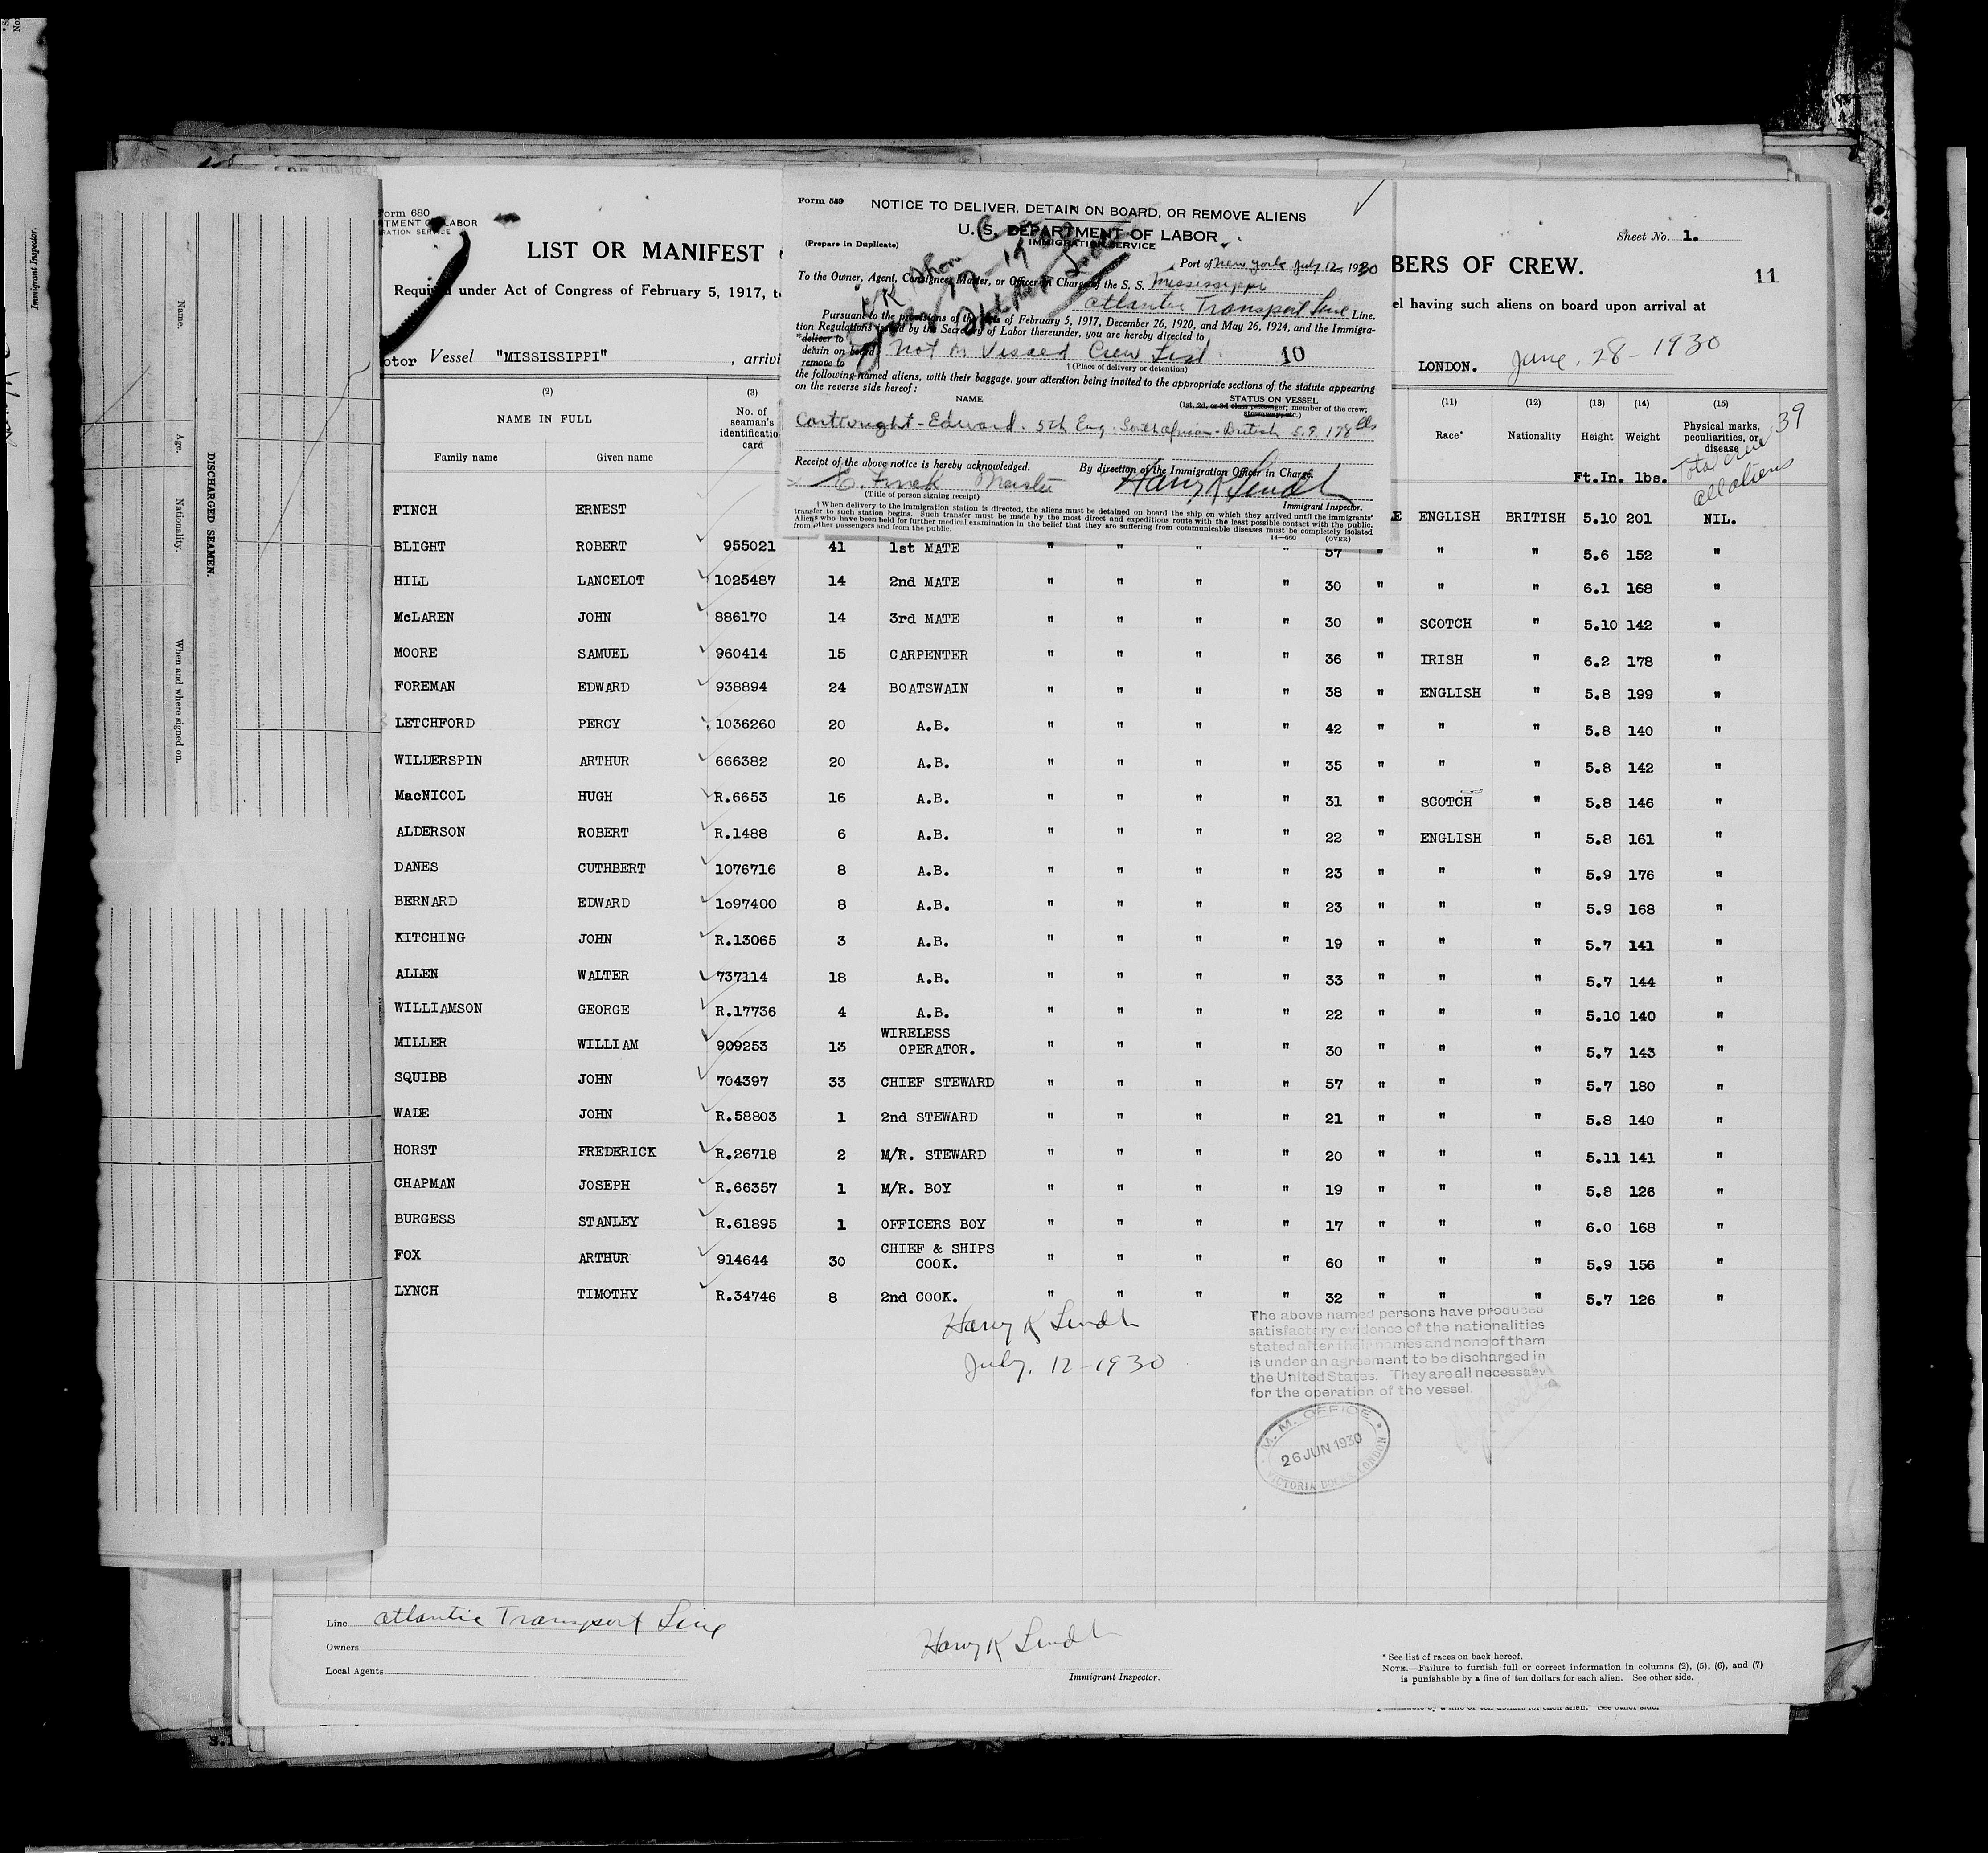 Immigrant Inspector.
DISCHARGED SEAMEN.
Name.
Age.
Nationality.
When and where signed on.
Form 680
LIST OR MANIFEST
BERS OF CREW.
Sheet No. 1.
11
Required under Act of Congress of February 5, 1917, t
el having such aliens on board upon arrival at
otor Vessel "MISSISSIPPI" , arrivi
LONDON. June. 28 - 1930
Form 559
NOTICE TO DELIVER, DETAIN ON BOARD, OR REMOVE ALIENS
U. S. DEPARTMENT OF LABOR
(Prepare in Duplicate)
IMMIGRATION SERVICE
Port of New York July 12, 1930
To the Owner, Agent, Consignee, Master, or Officer in Charge of the S. S. Mississippi
Atlantic Transport Line Line.
Pursuant to the provisions of the Acts of February 5, 1917, December 26, 1920, and May 26, 1924, and the Immigra-
tion Regulations issued by the Secretary of Labor thereunder, you are hereby directed to
*deliver to
detain on board
remove to
Not on Visaed Crew List. 10
† (Place of delivery or detention)
the following-named aliens, with their baggage, your attention being invited to the appropriate sections of the statute appearing
on the reverse side hereof:
NAME
STATUS ON VESSEL
(1st, 2d, or 3d class passenger; member of the crew;
stowaway, etc.)
Cartwright - Edward. 5th Eng. South African - British 5.9. 178 lbs
Receipt of the above notice is hereby acknowledged.
By direction of the Immigration Officer in Charge.
E. Finch Master
Harry K Lindh
(Title of person signing receipt)
Immigrant Inspector.
† When delivery to the immigration station is directed, the aliens must be detained on board the ship on which they arrived until the immigrants'
transfer to such station begins. Such transfer must be made by the most direct and expeditious route with the least possible contact with the public.
Aliens who have been held for further medical examination in the belief that they are suffering from communicable diseases must be completely isolated
from other passengers and from the public.
14—660 (OVER)
(2) (3) (11) (12) (13) (14) (15)
NAME IN FULL
Family name Given name
No. of
seaman's
identificatio
card
Race* Nationality Height Weight
Physical marks,
peculiarities, or
disease
Ft.In. lbs.
Total crew 39
all aliens
FINCH ERNEST E ENGLISH BRITISH 5.10 201 NIL.
BLIGHT ROBERT 955021 41 1st MATE " " " " 57 " " " 5.6 152 "
HILL LANCELOT 1025487 14 2nd MATE " " " " 30 " " " 6.1 168 "
McLAREN JOHN 886170 14 3rd MATE " " " " 30 " SCOTCH " 5.10 142 "
MOORE SAMUEL 960414 15 CARPENTER " " " " 36 " IRISH " 6.2 178 "
FOREMAN EDWARD 938894 24 BOATSWAIN " " " " 38 " ENGLISH " 5.8 199 "
LETCHFORD PERCY 1036260 20 A.B. " " " " 42 " " " 5.8 140 "
WILDERSPIN ARTHUR 666382 20 A.B. " " " " 35 " " " 5.8 142 "
MacNICOL HUGH R.6653 16 A.B. " " " " 31 " SCOTCH " 5.8 146 "
ALDERSON ROBERT R.1488 6 A.B. " " " " 22 " ENGLISH " 5.8 161 "
DANES CUTHBERT 1076716 8 A.B. " " " " 23 " " " 5.9 176 "
BERNARD EDWARD 1o97400 8 A.B. " " " " 23 " " " 5.9 168 "
KITCHING JOHN R.13065 3 A.B. " " " " 19 " " " 5.7 141 "
ALLEN WALTER 737114 18 A.B. " " " " 33 " " " 5.7 144 "
WILLIAMSON GEORGE R.17736 4 A.B. " " " " 22 " " " 5.10 140 "
MILLER WILLIAM 909253 13 WIRELESS OPERATOR. " " " " 30 " " " 5.7 143 "
SQUIBB JOHN 704397 33 CHIEF STEWARD " " " " 57 " " " 5.7 180 "
WADE JOHN R.58803 1 2nd STEWARD " " " " 21 " " " 5.8 140 "
HORST FREDERICK R.26718 2 M/R. STEWARD " " " " 20 " " " 5.11 141 "
CHAPMAN JOSEPH R.66357 1 M/R. BOY " " " " 19 " " " 5.8 126 "
BURGESS STANLEY R.61895 1 OFFICERS BOY " " " " 17 " " " 6.0 168 "
FOX ARTHUR 914644 30 CHIEF & SHIPS COOK. " " " " 60 " " " 5.9 156 "
LYNCH TIMOTHY R.34746 8 2nd COOK. " " " " 32 " " " 5.7 126 "
Harry K Lindh
July. 12 - 1930
The above named persons have produced
satisfactory evidence of the nationalities
stated after their names and none of them
is under an agreement to be discharged in
the United States. They are all necessary
for the operation of the vessel.
M. M. OFFICE
26 JUN 1930
VICTORIA DOCKS, LONDON
Line Atlantic Transport Line
Owners
Local Agents
Harry K Lindh
Immigrant Inspector.
* See list of races on back hereof.
NOTE.—Failure to furnish full or correct information in columns (2), (5), (6), and (7)
is punishable by a fine of ten dollars for each alien. See other side.